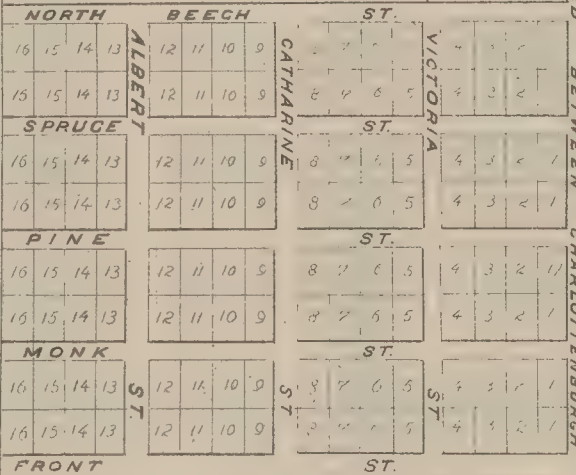 NORTH BEECH ST.
16 15 14 13 12 11 10 9
15 15 14 13 12 11 10 9 8 7 6 5 4 3 2
SPRUCE ST.
16 15 14 13 12 11 10 9 8 7 6 5 4 3 2 1
16 15 14 13 12 11 10 9 8 7 6 5 4 3 2 1
PINE ST.
16 15 14 13 12 11 10 9 8 7 6 5 4 3 2 1
16 15 14 13 12 11 10 9 8 7 6 5 4 3 2 1
MONK ST.
16 15 14 13 12 11 10 9 8 7 6 5 1
16 15 14 13 12 11 10 9 8 7 6 5 4 3 2 1
FRONT ST.
ALBERT ST.
CATHARINE ST
VICTORIA ST
BETWEEN CHARLOTTENBURGH